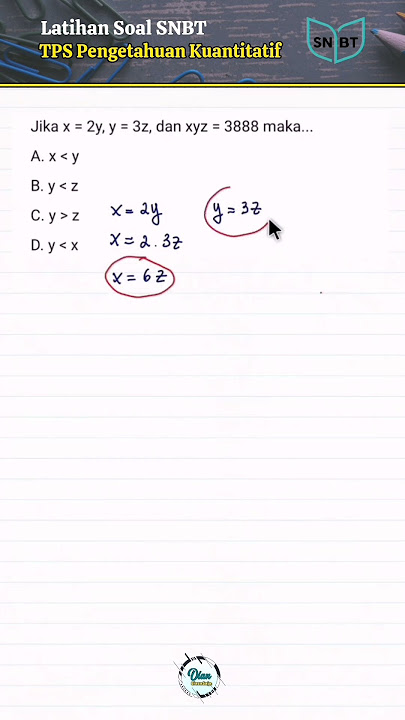 Latihan Soal SNBT
TPS Pengetahuan Kuantitatif
SNBT
Jika x = 2y, y = 3z, dan xyz = 3888 maka...
A. x < y
B. y < z
C. y > z
D. y < x
x = 2y
x = 2 . 3z
x = 6z
y = 3z
Dian